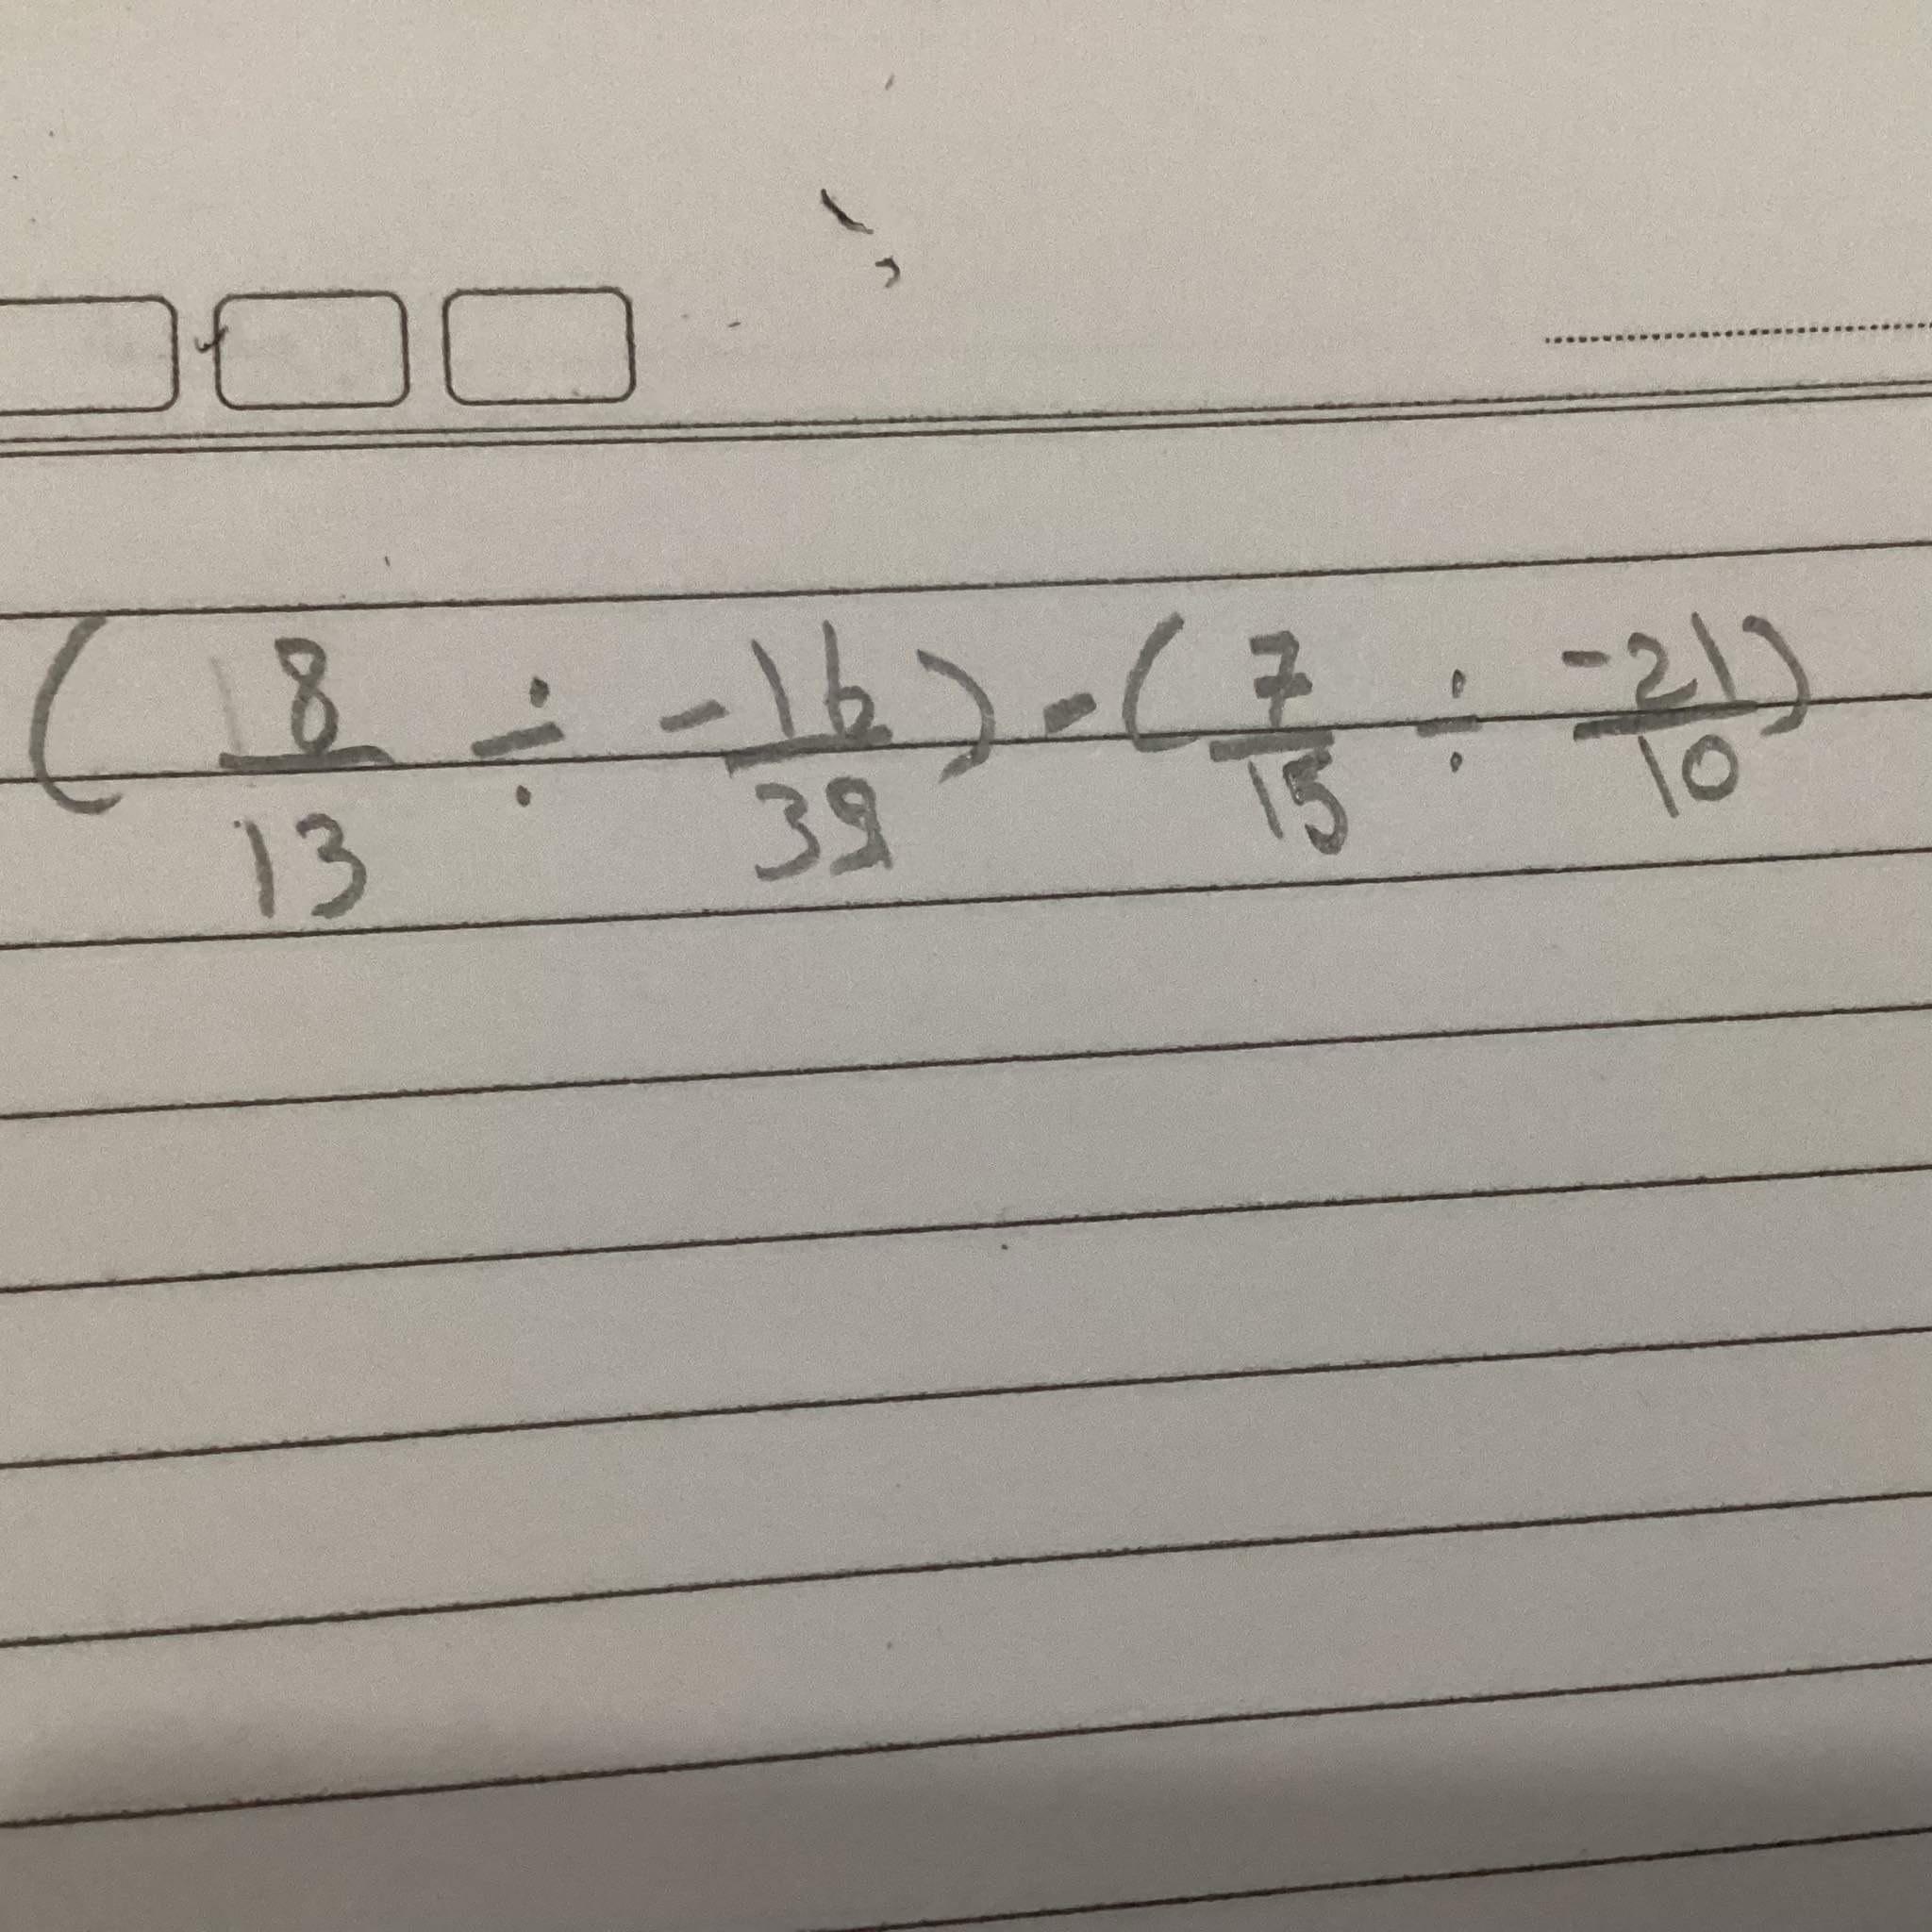 (8/13 ÷ -16/39) - (7/15 ÷ -21/10)